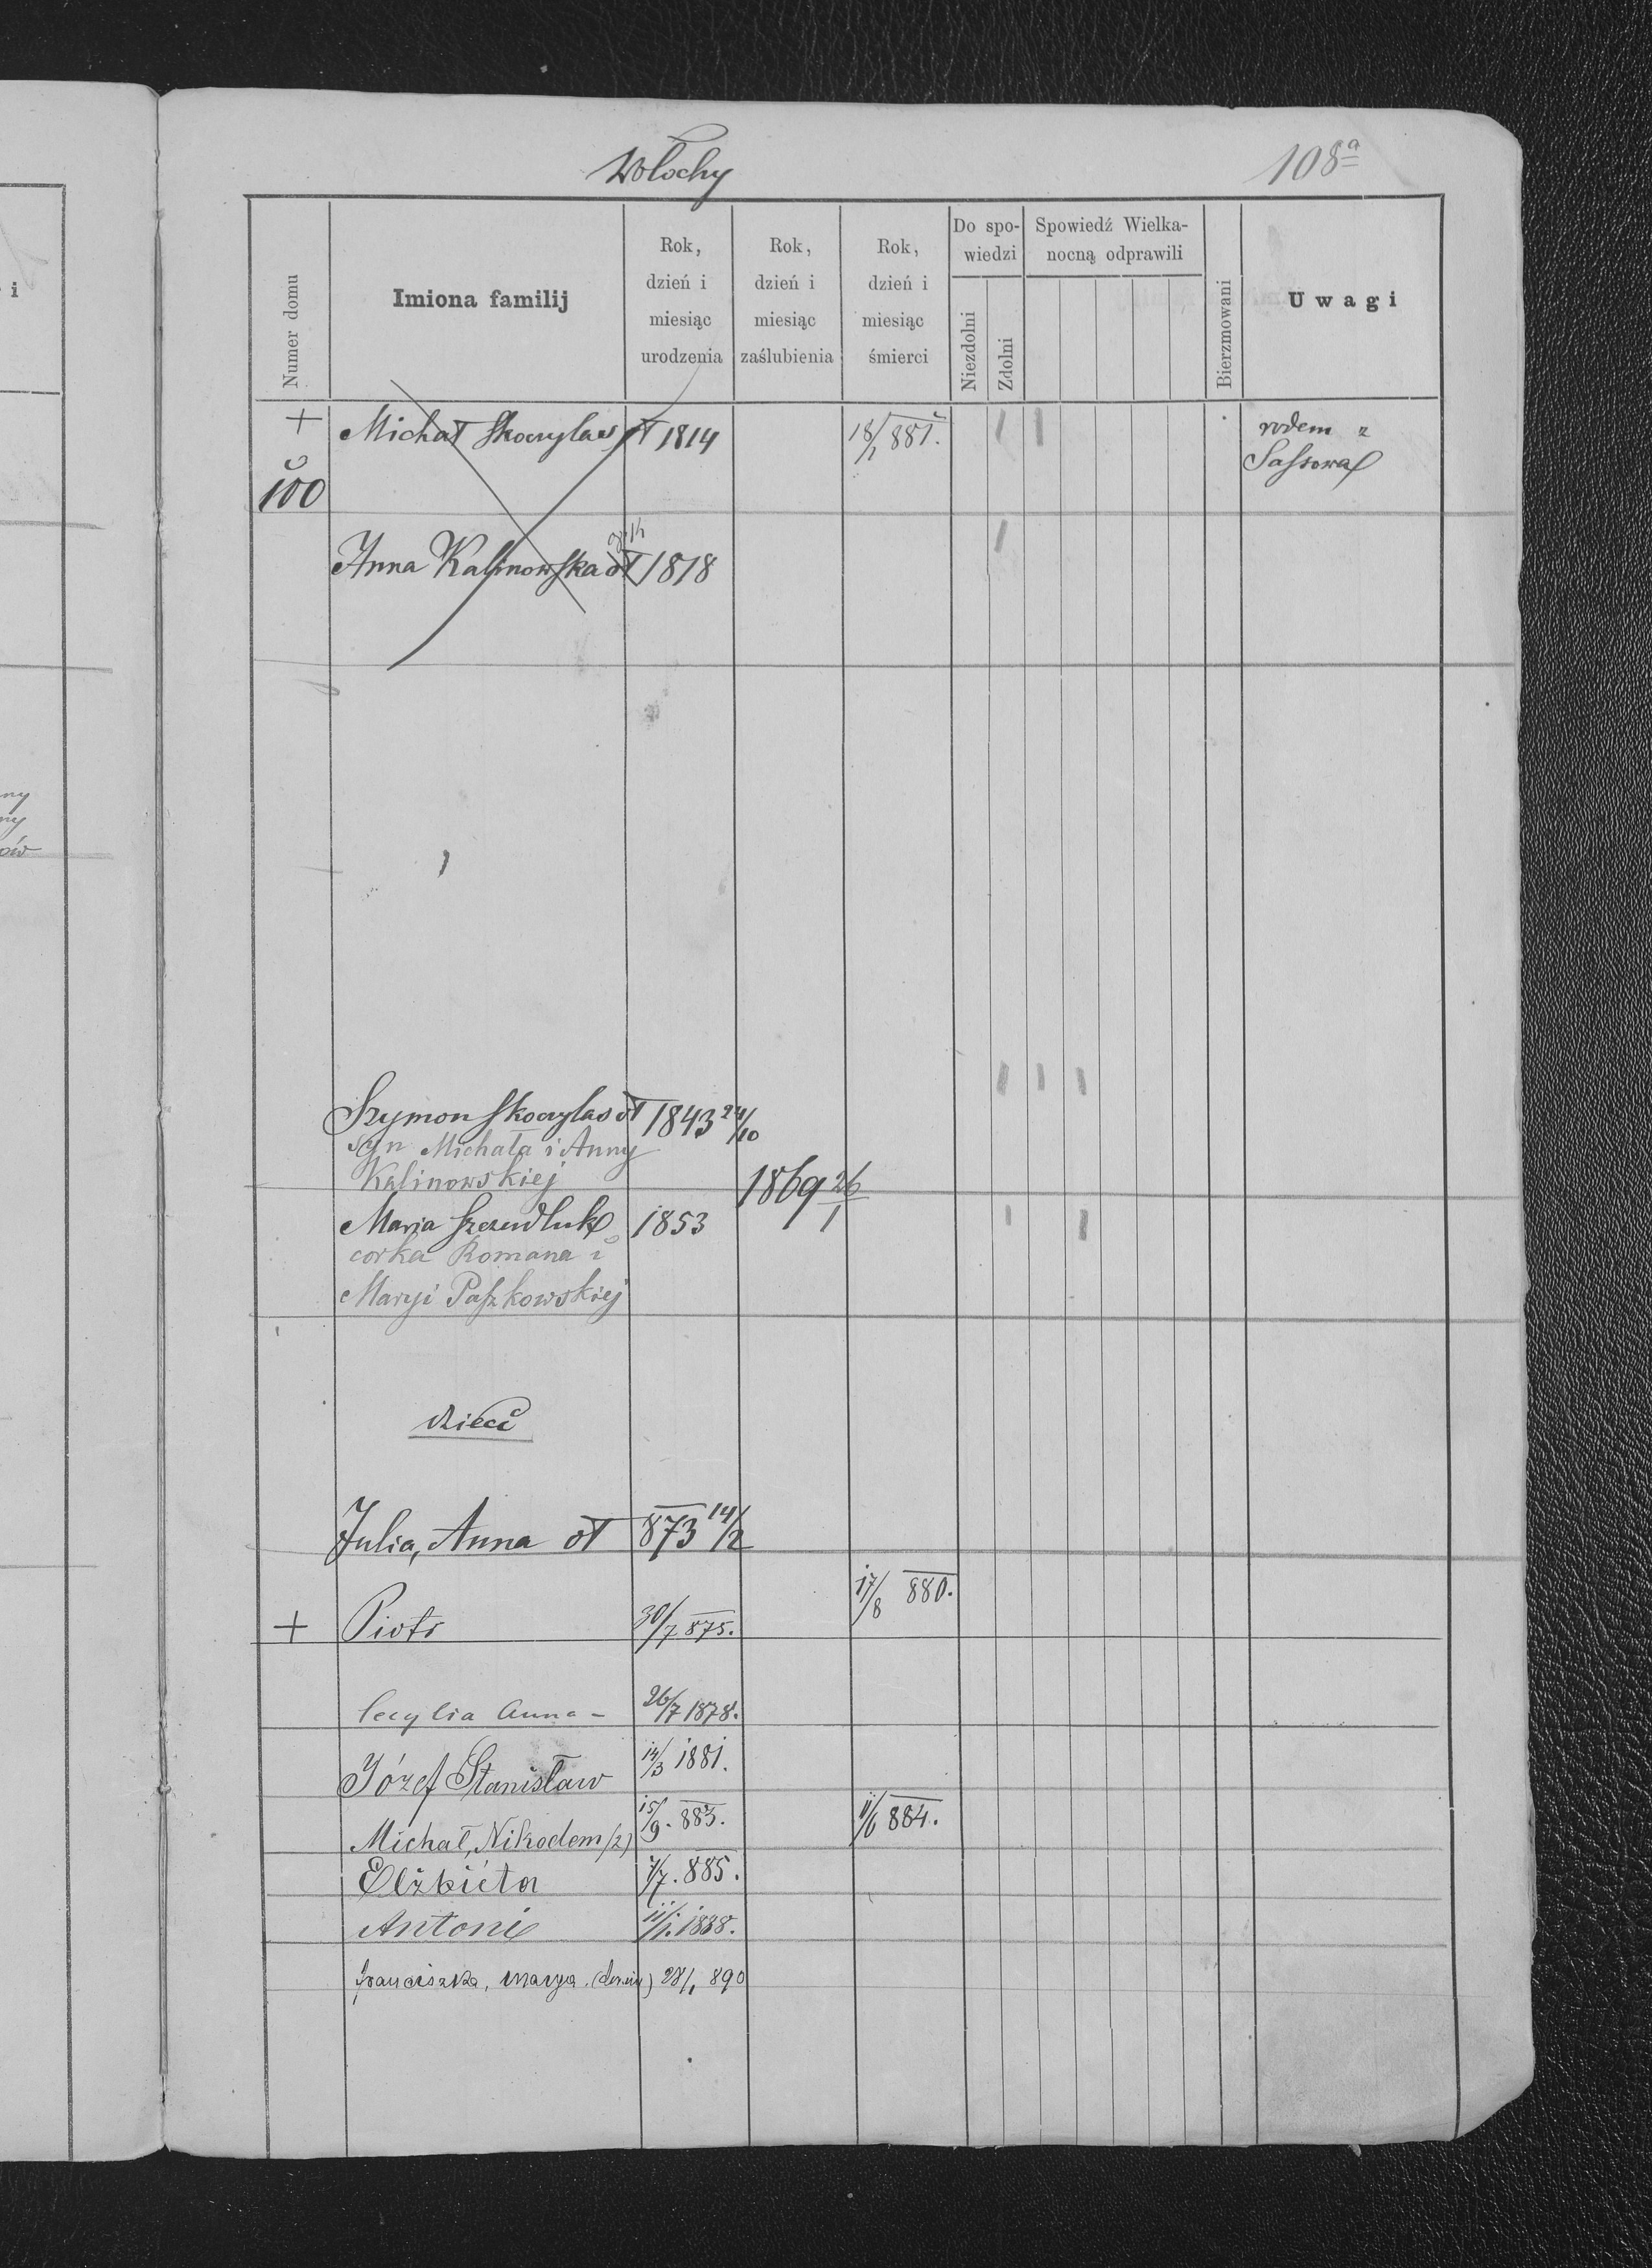 Wołochy
108a
Numer domu
Imiona familij
Rok, dzień i miesiąc urodzenia
Rok, dzień i miesiąc zaślubienia
Rok, dzień i miesiąc śmierci
Do spowiedzi
Niezdolni
Zdolni
Spowiedź Wielkanocną odprawili
Bierzmowani
Uwagi
+ Michał Skoczylas 1814 18/1 881. rodem z
100 Sassowa
Anna Kalinowska 1818
Szymon Skoczylas 1843 24/10
syn Michała i Anny
Kalinowskiej
1869 26/1
Marja 1853
corka Romana i
Maryi Paszkowskiej
dzieci
Julia, Anna 873 14/2
17/8 880.
+ Piotr 30/7 875.
Cecylia Anna - 26/7 1878.
Józef Stanisław 14/3 1881.
Michał, Nikodem (2) 15/9. 883. 11/6 884.
Elżbiéta 7/7. 885.
Antoni 11/1. 1888.
Franciszka, Marya 28/1 890
i
ny
ny
ów